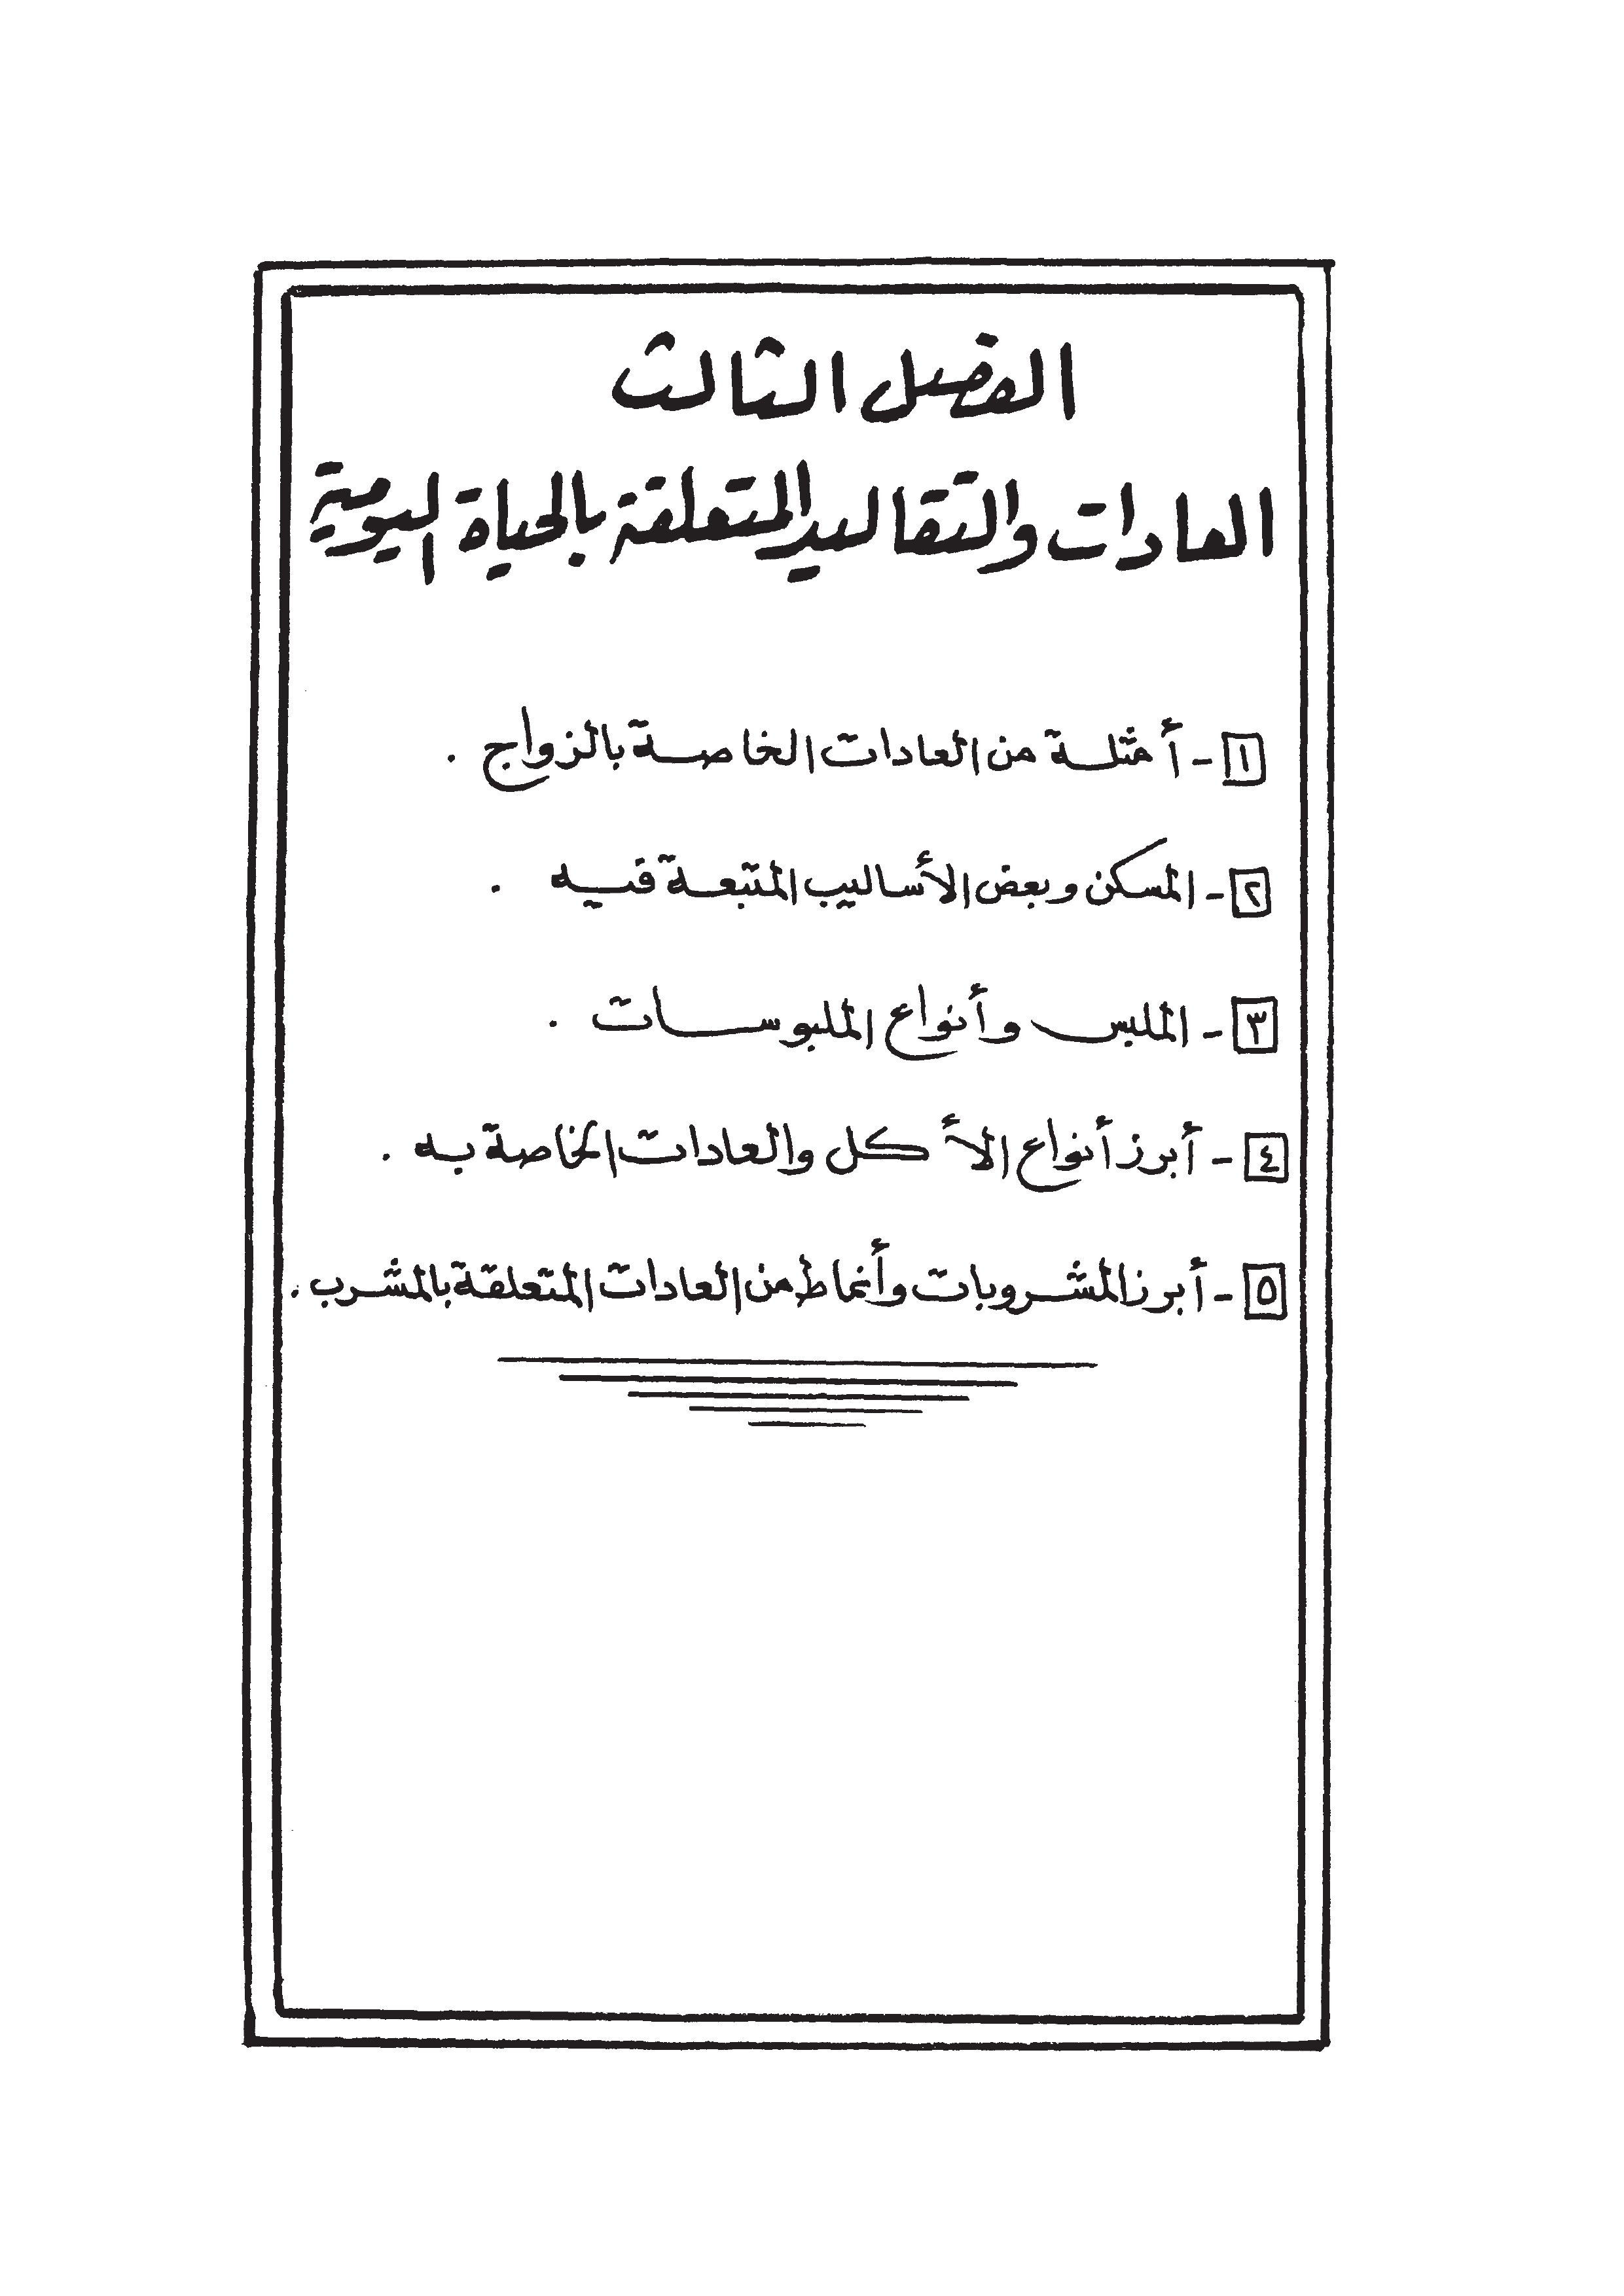 الفصل الثالث
العادات والتقاليد المتعلقة بالحياة اليومية
١ - أمثلة من العادات الخاصة بالزواج .
٢ - المسكن وبعض الأساليب المتبعة فيه .
٣ - الملبس وأنواع الملبوسات .
٤ - أبرز أنواع الأكل والعادات الخاصة به .
٥ - أبرز المشروبات وأنماط من العادات المتعلقة بالمشرب .